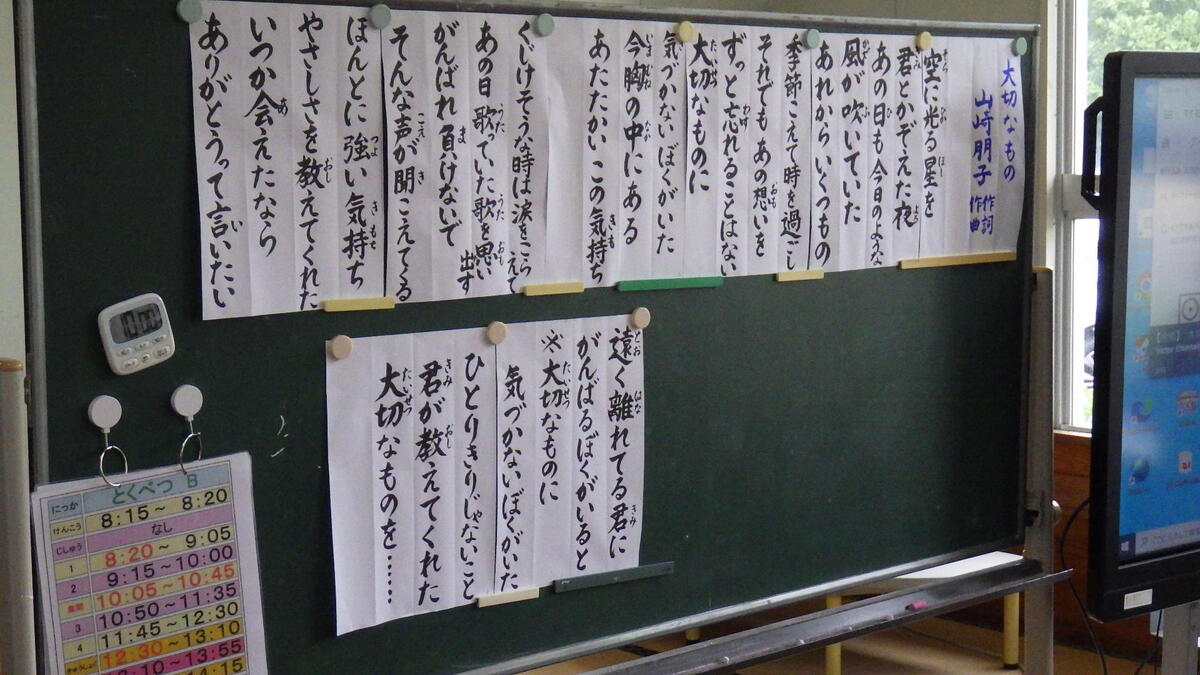 大切なもの
山崎朋子 作詞 作曲
空に光る星を
君とかぞえた夜
あの日も今日のような
風が吹いていた
あれからいくつもの
季節こえて時を過ごし
それでもあの想いを
ずっと忘れることはない
大切なものに
気づかないぼくがいた
今胸の中にある
あたたかいこの気持ち
くじけそうな時は涙をこらえて
あの日歌っていた歌を思い出す
がんばれ負けないで
そんな声が聞こえてくる
ほんとに強い気持ち
やさしさを教えてくれた
いつか会えたなら
ありがとうって言いたい
遠く離れてる君に
がんばるぼくがいると
※大切なものに
気づかないぼくがいた
ひとりきりじゃないこと
君が教えてくれた
大切なものを……
10:00
にっか とくべつ B
けんこう 8:15～ 8:20
じしゅう なし
1 8:20～ 9:05
2 9:15～10:00
10:05～10:45
3 10:50～11:35
4 11:45～12:30
きゅうしょく 12:30～13:10
13:10～13:55
14:15